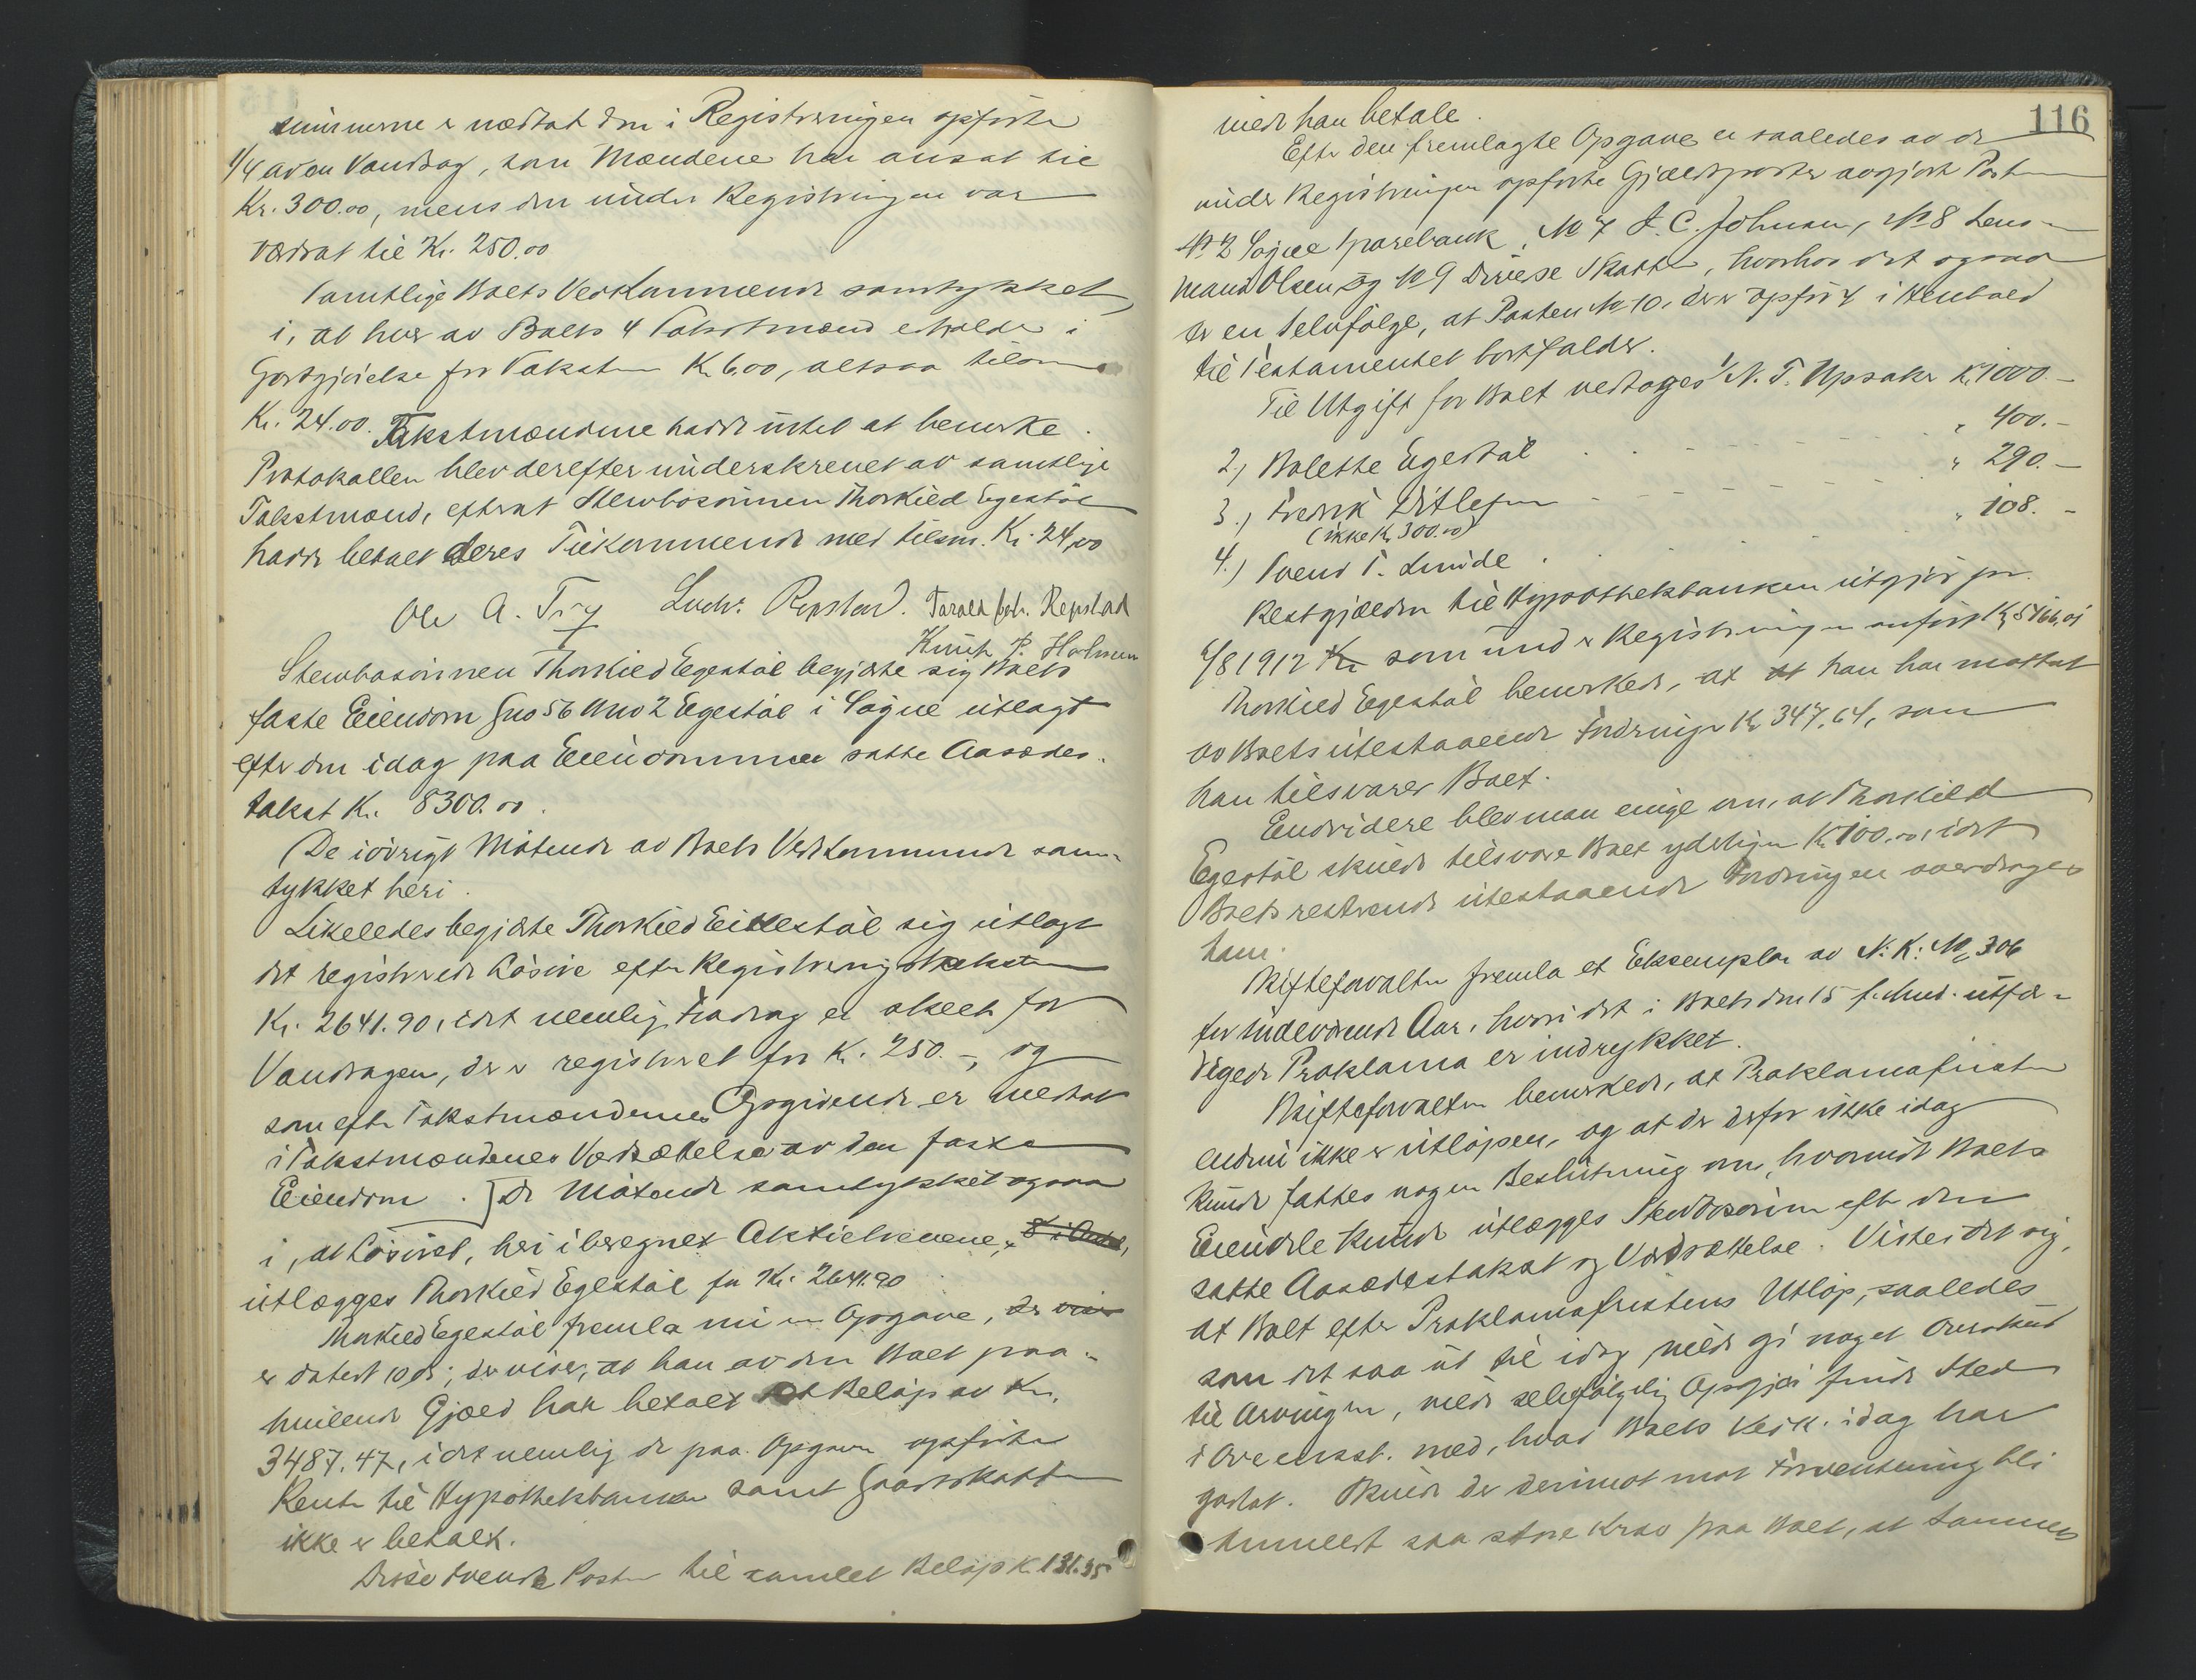 summerne er medtat den i Registreringen opførte
1/4 av en Vandsag, som Mændene har ansat til
Kr. 300.00, mens den under Registringen var
værdsat til Kr. 250.00
Samtlige Boets Vedkommende samtykket
i, at hver av Boets 4 Takstmænd erholder i
Godtgjørelse for Taksten Kr. 6.00, altsaa tilsm.
Kr. 24.00. Takstmændene hadde intet at bemerke.
Protokollen blev derefter underskrevet av samtlige
Takstmænd, efterat Stervbosønnen Thorkild Egestøl
hadde betalt deres Tilkommende med tilsm. Kr. 24,00
Ole A. Try Ludv. Repstad. Tarald Joh. Repstad
Knut P. Holmen
Stervbosønnen Thorkild Egestøl begjærte sig Boets
faste Eiendom Gno 56 Bno 2 Egestøl i Søgne utlagt
efter den idag paa Eiendommen satte Aasædes-
takst Kr. 8300.00.
De iøvrigt Møtende av Boets Vedkommende sam-
tykket heri.
Likeledes begjærte Thorkild Eikestøl sig utlagt
det registrerede Løsøre efter Registreringstaksten
Kr. 2641.90, idet nemlig Fradrag er skeet for
Vandsagen, der er registreret for Kr. 250.-, og
som efter Takstmændenes Opgivende er medtat
i Takstmændenes Værdsættelse av den faste
Eiendom.] De Møtende samtykket ogsaa
i, at Løsøret, heri iberegnet Aktiebrevene,
utlægges Thorkild Egestøl for Kr. 2641.90
Thorkild Egestøl fremla nu en Opgave, der viser
er datert 10 ds; der viser, at han av den Boet paa-
hvilende Gjæld har betalt et Beløp av Kr.
3487.47, idet nemlig de paa Opgaven opførte
Renter til Hypothekbanken samt Gaardsskatten
ikke er betalt.
Disse tvende Poster til samlet Beløp Kr. 131.35
116
vilde han betale.
Efter den fremlagte Opgave er saaledes av de
under Registringen opførte Gjældsposter avgjort Posterne
No 2 Søgne Sparebank, No 7 J. C. Johnsen, No 8 Lens-
mand Olsen og No 9 Diverse Skatter, hvorhos det ogsaa
er en Selvfølge, at Posten No 10, der er opført i Henhold
til Testamentet bortfalder.
Til Utgift for Boet vedtoges 1, N. T. Upsaker Kr. 1000.-
2, Bolette Egestøl " 400.-
3, Fredrik Ditlefsen " 290.-
(ikke Kr. 300.00)
4, Svend T. Lunde " 108.-
Restgjælden til Hypothekbanken utgjør pr.
1/8 1912 Kr. som under Registringen anført Kr. 5166,01
Thorkild Egestøl bemerkede, at han har mottat
av Boets utestaaende Fordringer Kr. 347.64, som
han tilsvarer Boet.
Endvidere blev man enige om, at Thorkild
Egestøl skulde tilsvare Boet yderligere Kr. 100.00, idet
Boets resterende utestaaende Fordringer overdrages
ham.
Skifteforvalteren fremla et Eksemplar av N. K. No 306
for indeværende Aar, hvori det i Boets den 15 f. Md. utfær-
digede Proklama er indrykket.
Skifteforvalteren bemerkede, at Proklamafristen
endnu ikke er utløpen, og at der derfor ikke idag
kunde fattes nogen Beslutning om, hvorvidt Boets
Eiendele kunde utlægges Stervbosønnen efter den
satte Aasædestakst og Værdsættelse. Viste det sig,
at Boet efter Proklamafristens Utløp, saaledes
som det saa ut til idag, vilde gi noget Overskud
til Arvingerne, vilde selvfølgelig Opgjør finde Sted
i Overensst. med, hvad Boets Vedk. idag har
godtat. Skulde der derimot mot Forventning bli
anmeldt saa store Krav paa Boet, at Summen